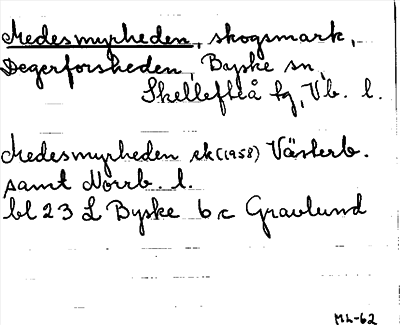 Medesmyrheden, skogsmark,
Degerforsheden, Byske sn,
Skellefteå tg, Vb. l.
Medesmyrheden ek (1958) Västerb.
samt Norrb. l.
bl 23 L Byske 6 c Gravlund
ML-62